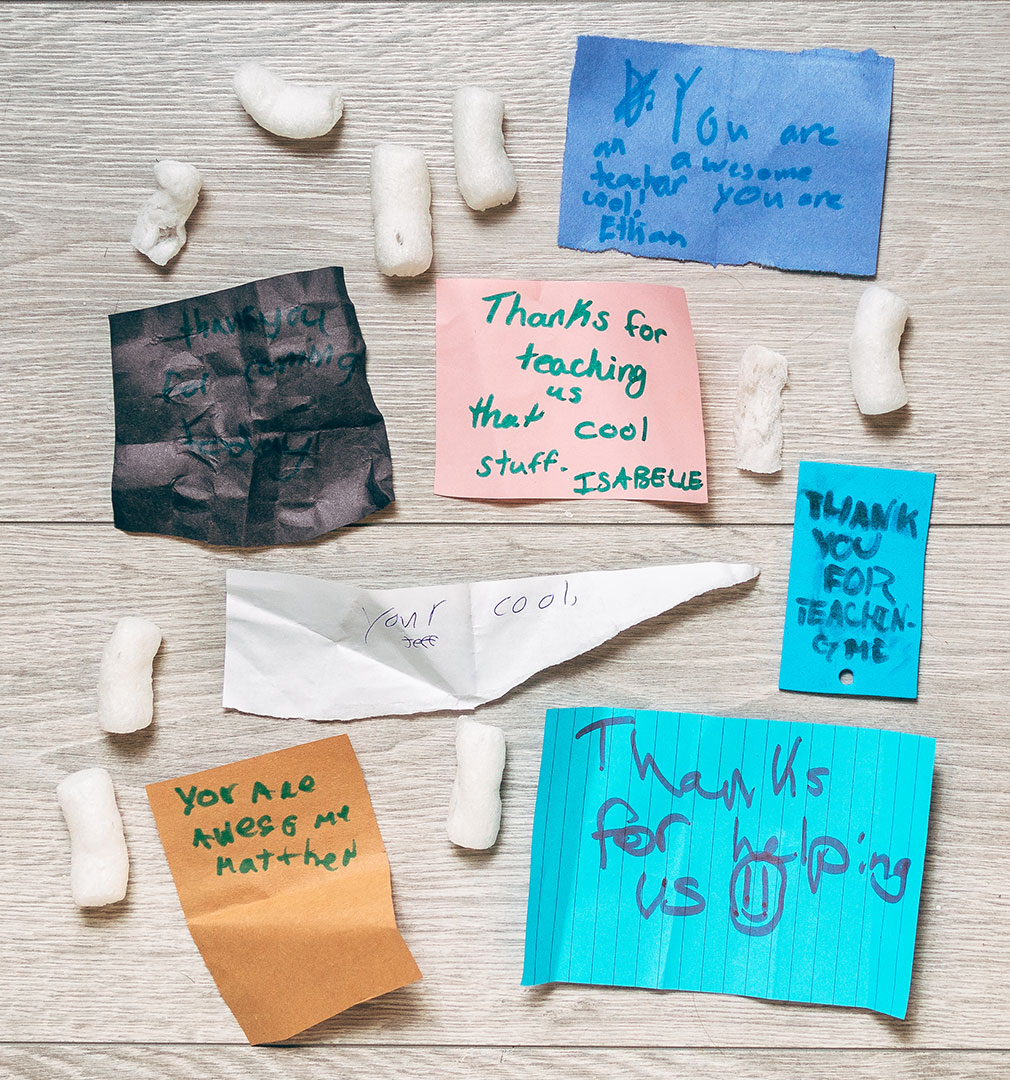 You are
an awesome
teachar you are
cool!
Ethan
thank you
for coming
today
Thanks for
teaching
us
that cool
stuff.
ISABELLE
THANK
YOU
FOR
TEACHIN-
G ME
your cool,
Jeff
YOU ARe
AWESOME
Matthew
Thanks
for helping
us